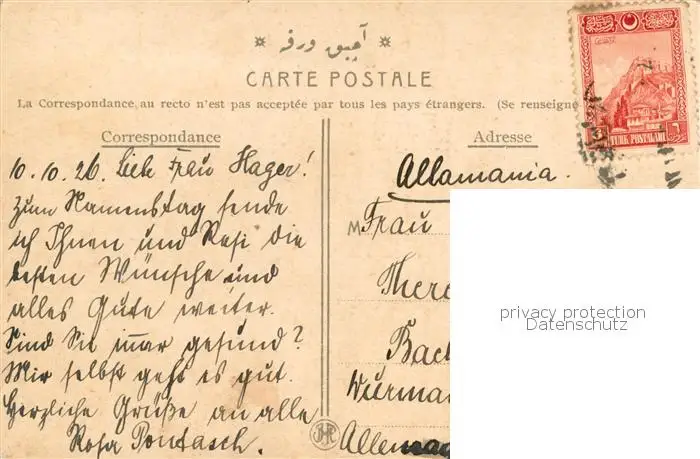 آچيق ورقه
CARTE POSTALE
La Correspondance au recto n'est pas acceptée par tous les pays étrangers. (Se renseigne
Correspondance
Adresse
TURK POSTALARI
6
10.10.26. Liebe Frau Hager!
Zum Namenstag sende
ich Ihnen und Resi die
besten Wünsche und
alles Gute weiter.
Sind Sie immer gesund?
Mir selbst geht es gut.
Herzliche Grüße an alle
Rosa Pontasch.
Allamania.
Frau
There
Bach
Wurman
Allemag
privacy protection
Datenschutz